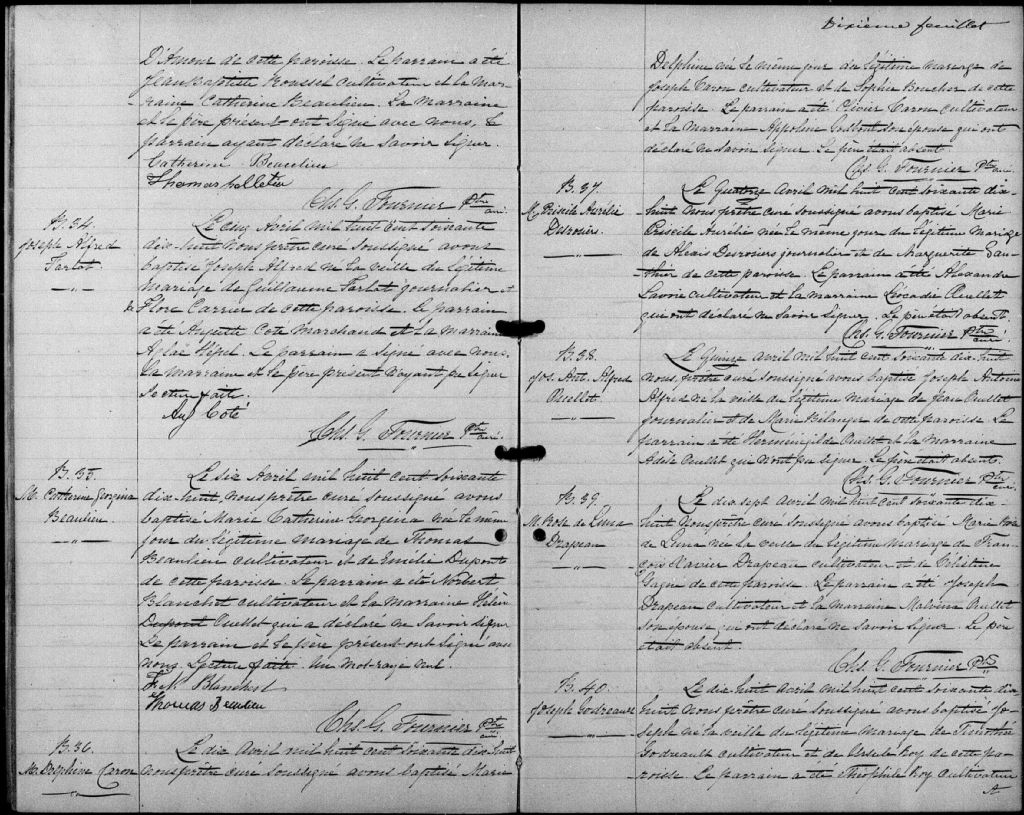 D'Amour de cette paroisse. Le parrain a été
Jean Baptiste Roussel cultivateur et la mar-
-raine Catherine Beaulieu. La marraine
et le père présent ont signé avec nous, le
parrain ayant déclaré ne savoir signer.
Catherine Beaulieu
Thomas pelletier
Chs. G. Fournier Ptre
curé.
B. 34.
Joseph Alfred
Le Cinq Avril mil huit cent soixante
dix-huit nous prêtre curé soussigné avons
baptisé Joseph Alfred né la veille du légitime
mariage de Guillaume journalier et
de Flore Carrier de cette paroisse. Le parrain
a été Auguste Coté Marchand et la marraine
Aglaé . Le parrain a signé avec nous.
La marraine et le père présent n'ayant pu signer
Lecture faite.
Aug Coté
Chs. G. Fournier Ptre
curé.
B. 35.
M. Catherine Georgina
Beaulieu.
Le dix Avril mil huit cent soixante
dix-huit, nous prêtre curé soussigné avons
baptisé Marie Catherine Georgina née le même
jour du légitime mariage de Thomas
Beaulieu cultivateur et de Emélie Dupont
de cette paroisse. Le parrain a été Norbert
Blanchet cultivateur et la marraine Hélène
Dupont Ouellet qui a déclaré ne savoir signer
Le parrain et le père présent ont signé avec
nous. Lecture faite. Un mot rayé nul.
Blanchet
Thomas Beaulieu
Chs. G. Fournier Ptre
curé
B. 36.
M. Delphine Caron
Le dix Avril mil huit cent soixante dix-huit
nous prêtre curé soussigné avons baptisé Marie
Dixième feuillet
Delphine née le même jour du légitime mariage de
Joseph Caron cultivateur et de Sophie Boucher de cette
paroisse. Le parrain a été Olivier Caron cultivateur
et la marraine Appoline son épouse qui ont
déclaré ne savoir signer. Le père était absent.
Chs. G. Fournier Ptre
curé.
B. 37.
M. Priscile Aurélie
Desrosier.
Le Quatorze Avril mil huit cent soixante dix-
huit nous prêtre curé soussigné avons baptisé Marie
Priscile Aurélie née le même jour du légitime mariage
de Alexis Desrosiers journalier et de Marguerite Gau-
thier de cette paroisse. Le parrain a été Alexandre
Lavoie cultivateur et la marraine Léocadie Ouellet
qui ont déclaré ne savoir signer. Le père était absent.
Chs. G. Fournier Ptre
curé.
B. 38.
Jos. Ant. Alfred
Ouellet
Le Quinze Avril mil huit cent soixante dix-huit
nous, prêtre curé soussigné avons baptisé Joseph Antoine
Alfred né la veille du légitime mariage de Jean Ouellet
journalier et de Marie Bélanger de cette paroisse. Le
parrain a été Herménégilde Ouellet et la marraine
Adèle Ouellet qui n'ont pu signer. Le père était absent.
Chs. G. Fournier Ptre
curé.
B. 39.
M. Rose de Lima
Drapeau
Le dix sept Avril mil huit cent soixante dix-
huit nous prêtre curé soussigné avons baptisé Marie Rose
de Lima née la veille du légitime mariage de Fran-
çois Xavier Drapeau cultivateur et de Célestine
Gagné de cette paroisse. Le parrain a été Joseph
Drapeau cultivateur et la marraine Malvina Ouellet
son épouse qui ont déclaré ne savoir signer. Le père
était absent.
Chs. G. Fournier Ptre
B. 40.
Joseph Godreault
Le dix huit Avril mil huit cent soixante dix
huit nous prêtre curé soussigné avons baptisé Jo-
seph né la veille du légitime mariage de Timothé
Godreault cultivateur et de Ursule Roy de cette pa-
-roisse. Le parrain a été Théophile Roy cultivateur